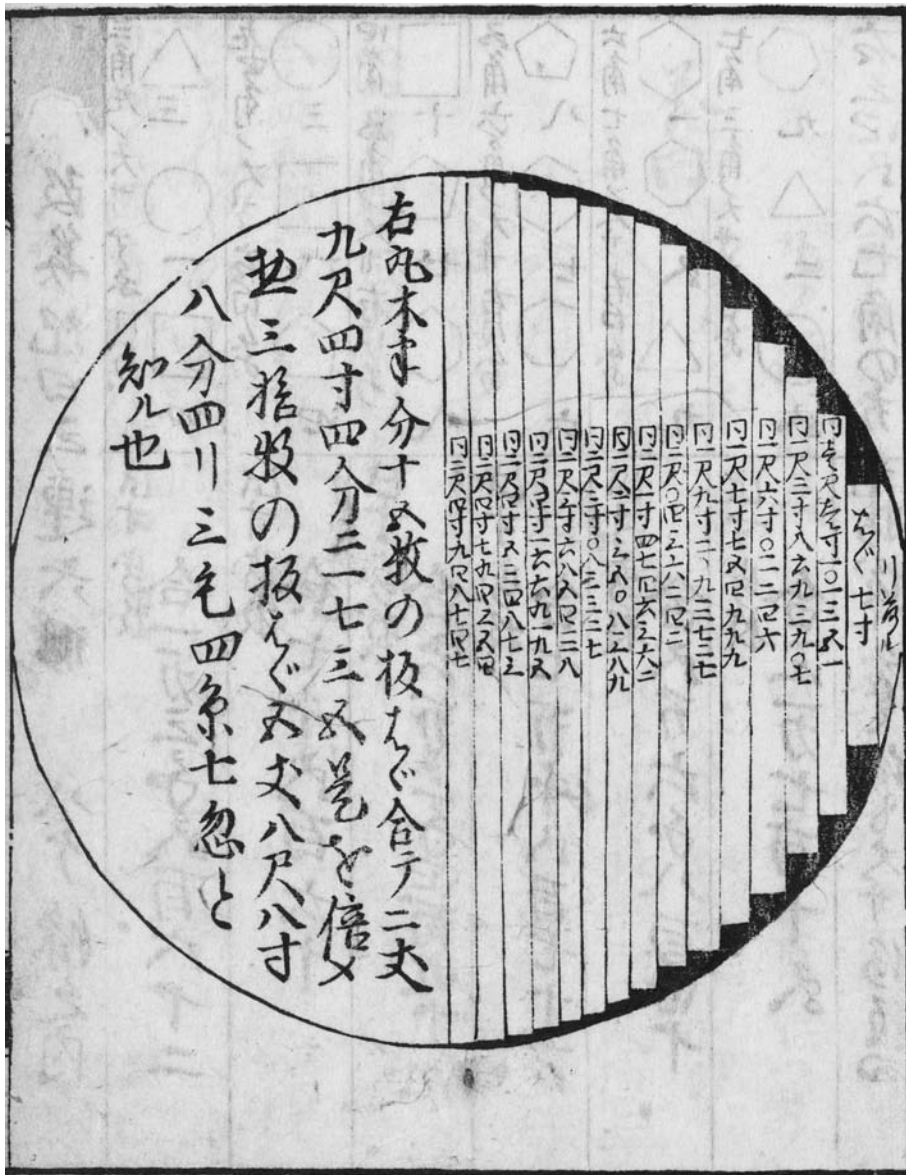 はゞ七寸
同壱尺壱寸一〇一三五一
同一尺三寸八六九三九〇七
同一尺六寸〇一一二四六
同一尺七寸七五四九九九
同一尺九寸二〇九三七二七
同二尺〇四三六二四二
同二尺一寸四七四六三六二
同二尺二寸三五〇八三八九
同二尺三寸〇八三三三七
同二尺三寸六八五四二八
同二尺四寸一六六九一九五
同二尺四寸五三四八七三
同二尺四寸七九四三五四
同二尺四寸九四八七四七
右丸木半分十五枚の板はゞ合テ二丈
九尺四寸四分二一七三五是を倍〆
惣三拾枚の板はゞ五丈八尺八寸
八分四リ三毛四糸七忽と
知ル也